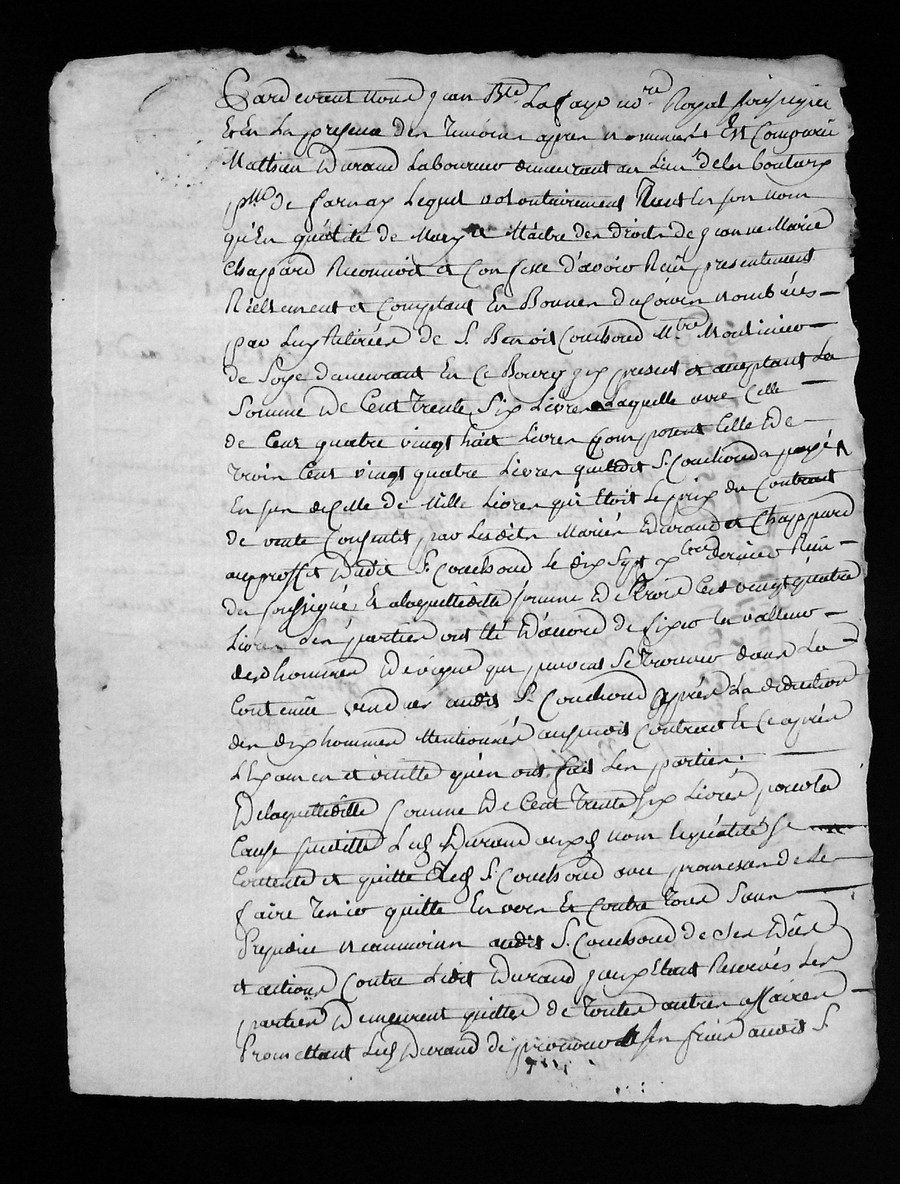 Pardevant nous jean Bte Lafaye nore Royal soussigné
Et En La presence des temoins apres nommés Est Comparu
Mathieu Durand Laboureur demeurant au Lieu de les
psse de farnay Lequel volontairement tant En son nom
qu'En qualité de Mary Maitre des droits de jeanne Marie
Chappard Reconnoit et Confesse d'avoir Reçu presentement
Réelement et Comptant En Bonnes Especes nombrées
par Luy Retirées de S. Benoit Couchoud Mtre Moulinier
de Soye demeurant En Ce Bourg present et acceptant La
Somme De Cent Trente Six Livres Laquelle avec Celle
de Cent quatre vingt huit Livres Composent Celle De
trois Cent vingt quatre Livres que ledit S. Couchoud a payé
En sus de Celle de Mille Livres qui Etoit Le prix du Contrat
de vente Consenti par Lesdits Mariés Durand et Chappard
au proffit Dudit S. Couchoud le dix Sept xbre dernier Reçu
du soussigné, Et a laquelle dite somme De trois Cent vingt quatre
Livres Les parties ont été D'accord de fixer la valleur
des hommées De vigne qui peuvent Se trouver dans La
Contenüe vendue audit S. Couchoud après La deduction
des dix hommées Mentionnées audit Contrat Et Ce après
L'Examen et visitte qu'en ont fait Les parties.
De laquelle ditte Somme De Cent Trente six Livres pour la
Cause susditte Led Durand auxd nom Et qualités se
Contente et quitte Led S. Couchoud avec promesse de le
faire Tenir quitte Envers Et Contre Tous Sans
Prejudice Neanmoins audit S. Couchoud de Ses Dûs
et actions Contre Ledit Durand Reservés Les
parties Demeurent quittes de Toutes autres affaires
Promettant Led Durand de à ses frais audit S.